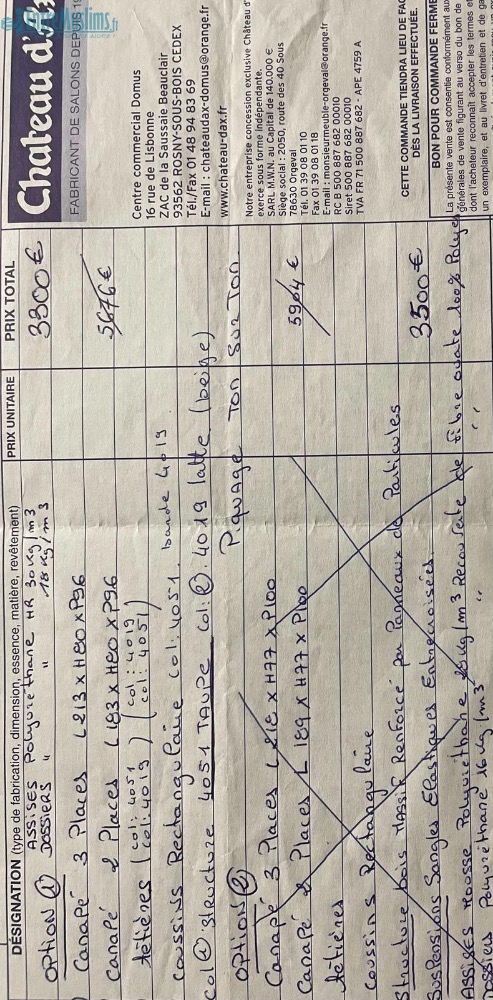 Chateau d'Ax
FABRICANT DE SALONS DEPUIS 19
Centre commercial Domus
16 rue de Lisbonne
ZAC de la Saussaie Beauclair
93562 ROSNY-SOUS-BOIS CEDEX
Tél./Fax 01 48 94 83 69
E-mail : chateaudax-domus@orange.fr
www.chateau-dax.fr
Notre entreprise concession exclusive Château d'
exerce sous forme indépendante.
SARL M.W.N. au Capital de 140.000 €
Siège social : 2050, route des 40 Sous
78630 Orgeval
Tél. 01 39 08 0110
Fax 01 39 08 0118
E-mail : monsieurmeuble-orgeval@orange.fr
RC B 500 887 682 00010
Siret 500 887 682 00010
TVA FR 71 500 887 682 - APE 4759 A
CETTE COMMANDE TIENDRA LIEU DE FAC
DÈS LA LIVRAISON EFFECTUÉE.
BON POUR COMMANDE FERME
La présente vente est consentie conformément aux
générales de vente figurant au verso du bon de
dont l'acheteur reconnaît accepter les termes et
un exemplaire, et au livret d'entretien et de ga
DÉSIGNATION (type de fabrication, dimension, essence, matière, revêtement) PRIX UNITAIRE PRIX TOTAL
ASSISES Polyuréthane HR 30 Kg/m3
OPTION ① DOSSIERS " " 18 Kg/m3 3300 €
Canapé 3 Places L 213 x H80 x P96
Canapé 2 Places L 183 x H80 x P96 5676 €
têtières (col: 4051 ) (col: 4019
col: 4019 ) col: 4051)
Coussins Rectangulaire col: 4051 bande 4019
Col ① Structure 4051 TAUPE Col: ② 4019 latte (beige)
Piquage Ton sur Ton
OPTION ②
Canapé 3 Places L 218 x H77 x P100
Canapé 2 Places L 189 x H77 x P100 5904 €
têtières
Coussins Rectangulaire
Structure bois MASSIF Renforcé par Panneaux de Particules
Suspensions Sangles Elastiques Entrecroisées 3500 €
ASSISES Mousse Polyuréthane Kg/m3 Recouverte de fibre ouate 100% Polyes
Dossiers Polyuréthane 16 Kg/m3 " "